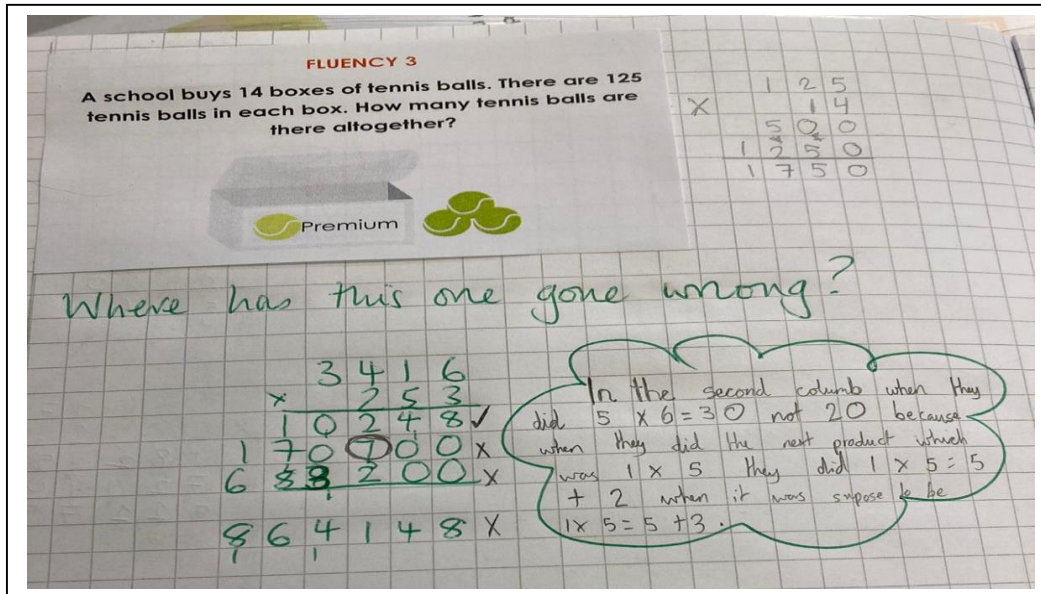 FLUENCY 3
A school buys 14 boxes of tennis balls. There are 125
tennis balls in each box. How many tennis balls are
there altogether?
Premium
1 2 5
X 1 4
5 0 0
1 2 5 0
1 7 5 0
Where has this one gone wrong?
3 4 1 6
× 2 5 3
1 0 2 4 8 ✓
1 7 0 7 0 0 X
6 8 3 2 0 0 X
8 6 4 1 4 8 X
1 1
In the second columb when they
did 5 X 6 = 30 not 20 because
when they did the next product which
was 1 X 5 they did 1 X 5 = 5
+ 2 when it was supose to be
1X 5 = 5 +3.